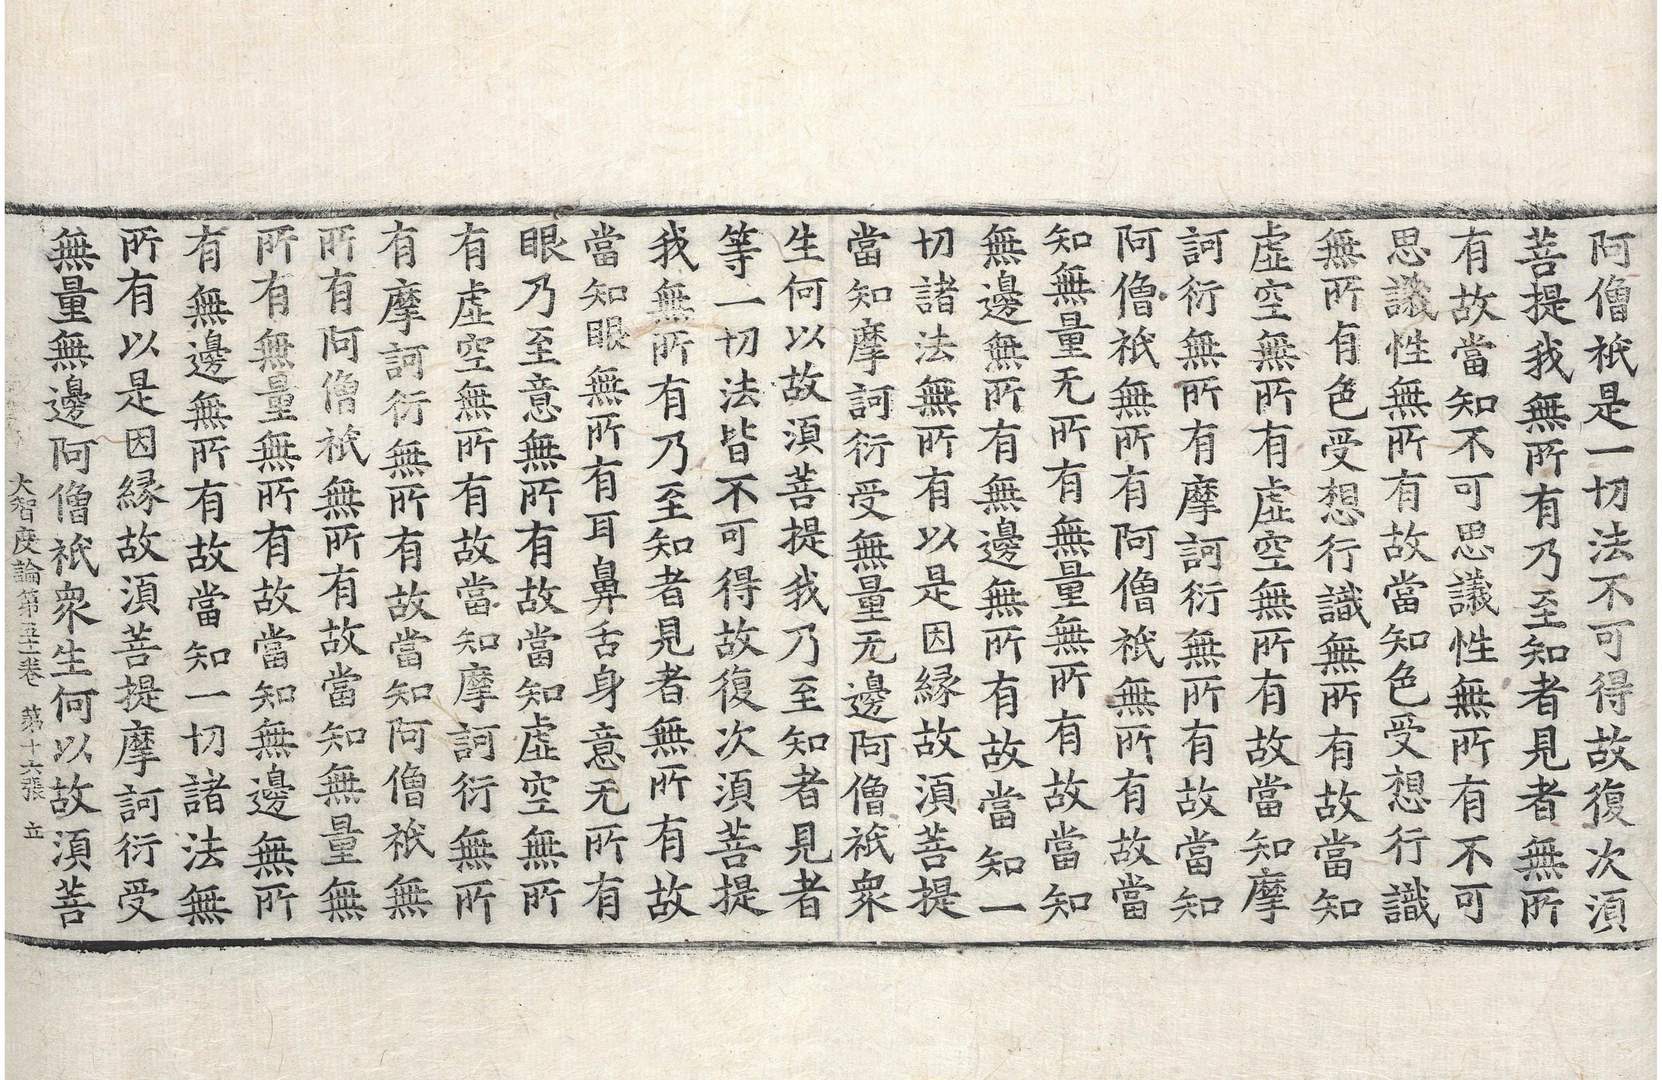 阿僧祇是一切法不可得故復次須
菩提我無所有乃至知者見者無所
有故當知不可思議性無所有不可
思議性無所有故當知色受想行識
無所有色受想行識無所有故當知
虛空無所有虛空無所有故當知摩
訶衍無所有摩訶衍無所有故當知
阿僧祇無所有阿僧祇無所有故當
知無量无所有無量無所有故當知
無邊無所有無邊無所有故當知一
切諸法無所有以是因緣故須菩提
當知摩訶衍受無量无邊阿僧祇衆
生何以故須菩提我乃至知者見者
等一切法皆不可得故復次須菩提
我無所有乃至知者見者無所有故
當知眼無所有耳鼻舌身意无所有
眼乃至意無所有故當知虛空無所
有虛空無所有故當知摩訶衍無所
有摩訶衍無所有故當知阿僧祇無
所有阿僧祇無所有故當知無量無
所有無量無所有故當知無邊無所
有無邊無所有故當知一切諸法無
所有以是因緣故須菩提摩訶衍受
無量無邊阿僧祇衆生何以故須菩
大智度論第五十一卷 第十六張 立